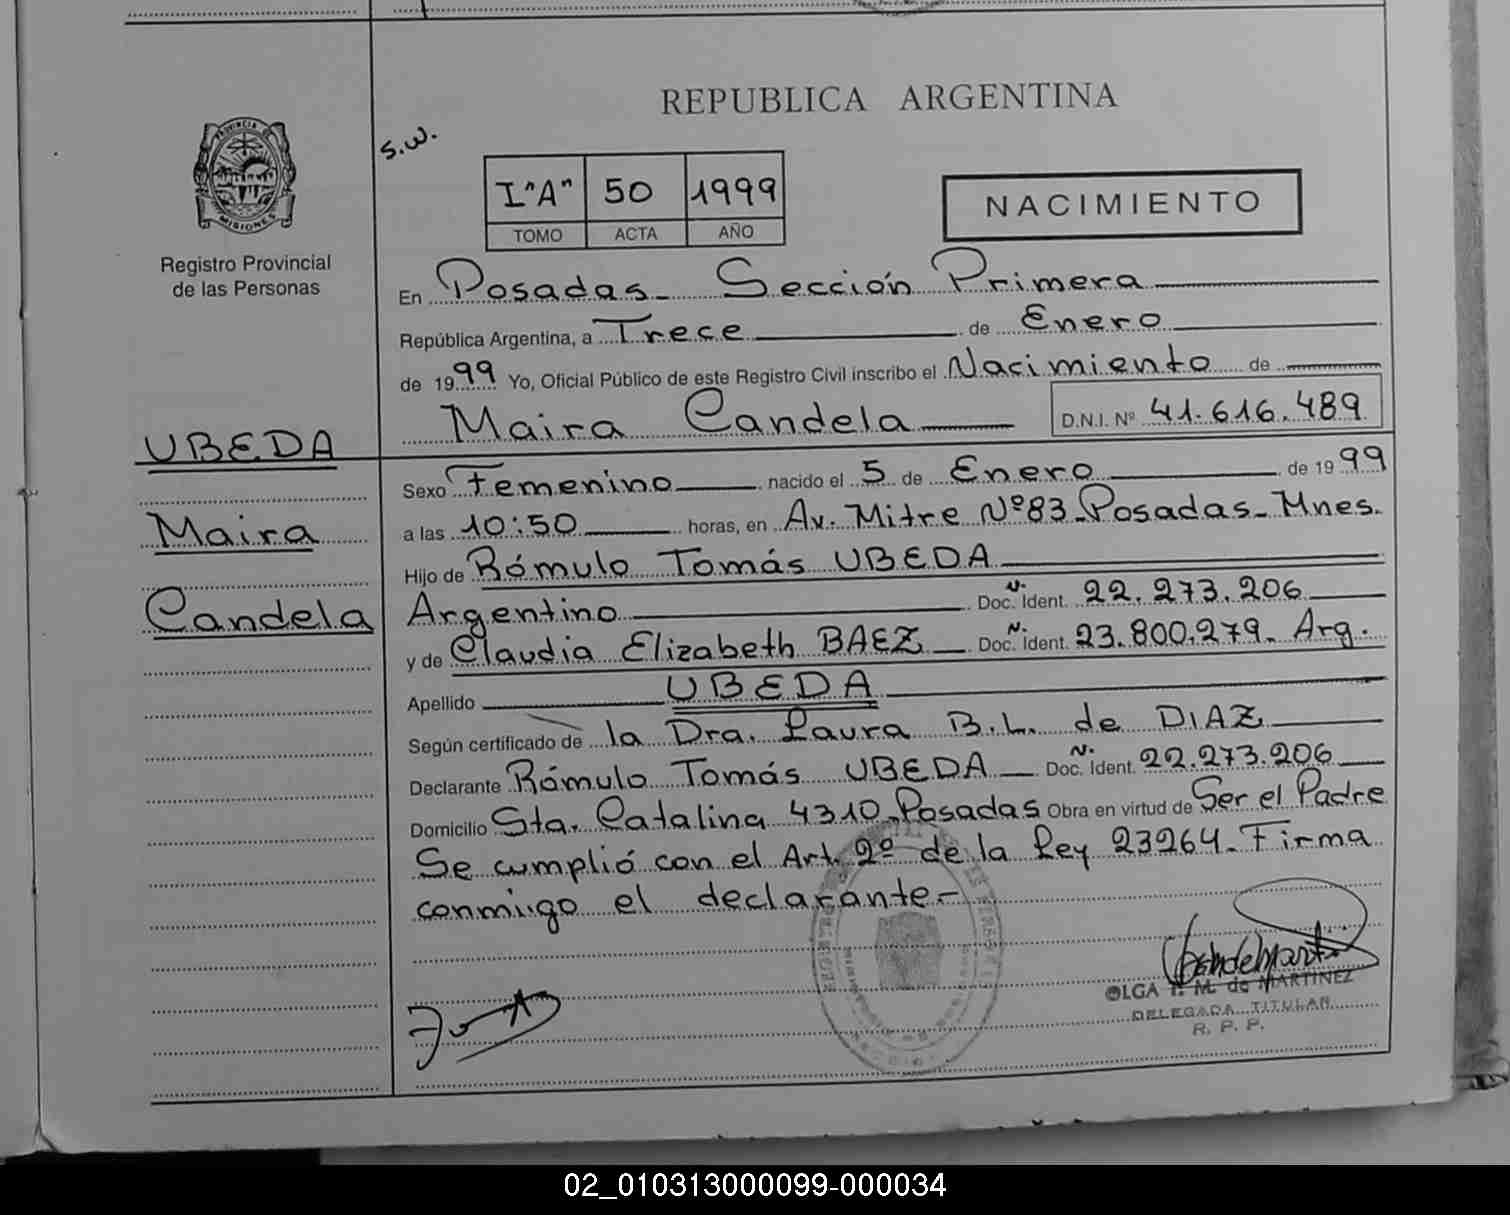 REPUBLICA ARGENTINA
S.W.
PROVINCIA DE
MISIONES
I "A" 50 1999
TOMO ACTA AÑO
NACIMIENTO
Registro Provincial
de las Personas
En Posadas - Sección Primera
República Argentina, a Trece de Enero
de 1999 Yo, Oficial Público de este Registro Civil inscribo el Nacimiento de
Maira Candela D.N.I. Nº 41.616.489
UBEDA
Maira
Candela
Sexo Femenino nacido el 5 de Enero de 1999
a las 10:50 horas, en Av. Mitre Nº 83 - Posadas - Mnes.
Hijo de Rómulo Tomás UBEDA
Argentino Doc. N. Ident. 22.273.206
y de Claudia Elizabeth BAEZ Doc. N. Ident. 23.800.279 - Arg.
Apellido UBEDA
Según certificado de la Dra. Laura B.L. de DIAZ
Declarante Rómulo Tomás UBEDA Doc. N. Ident. 22.273.206
Domicilio Sta. Catalina 4310 - Posadas Obra en virtud de Ser el Padre
Se cumplió con el Art. 2º de la Ley 23264 - Firma
conmigo el declarante -
OLGA M. de MARTINEZ
DELEGADA TITULAR
R. P. P.
02_010313000099-000034